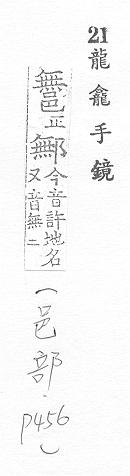 21 龍龕手鏡
𨞕正鄦今音許地名又音無二
(邑部.p456)